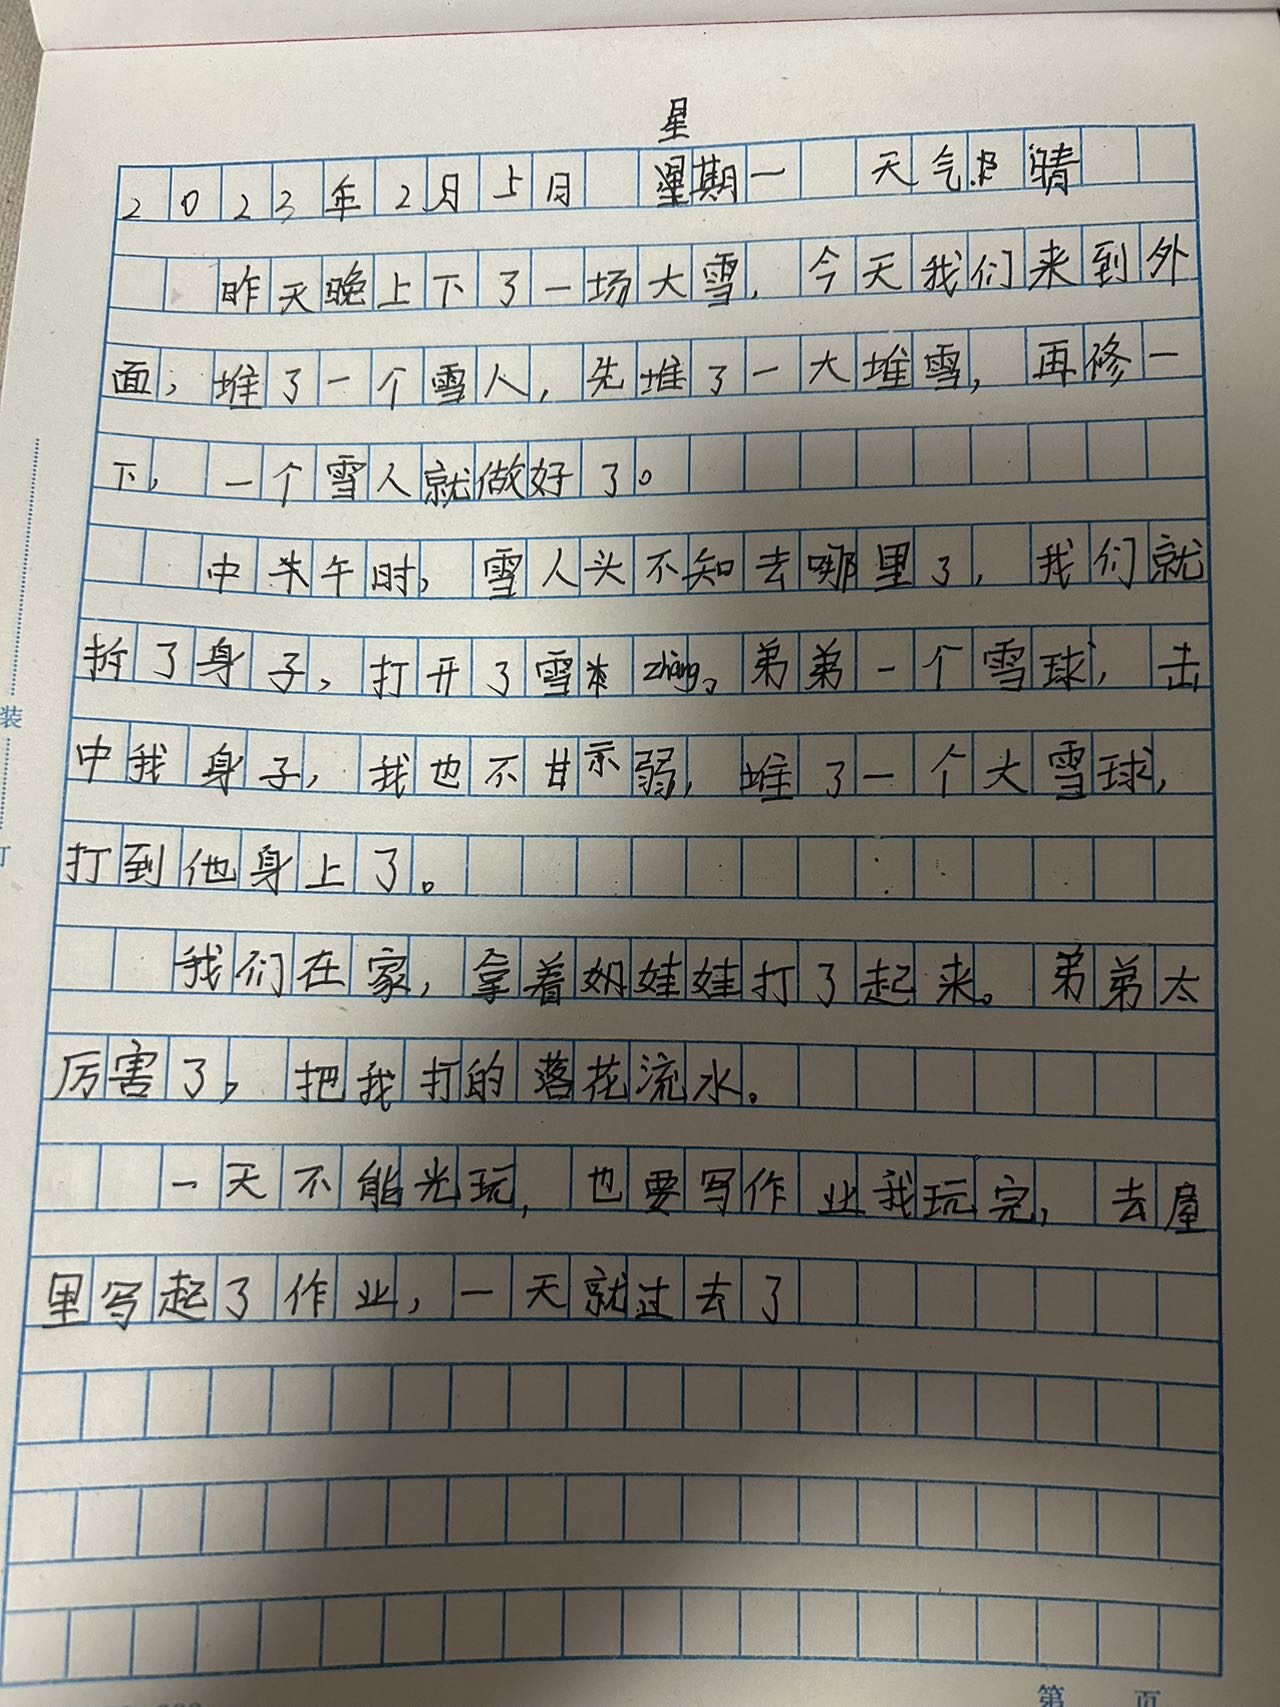 星
2023年2月5日 星期一 天气:晴
昨天晚上下了一场大雪,今天我们来到外
面,堆了一个雪人,先堆了一大堆雪,再修一
下,一个雪人就做好了。
中午时,雪人头不知去哪里了,我们就
拆了身子,打开了雪zhàng。弟弟一个雪球,击
中我身子,我也不甘示弱,堆了一个大雪球,
打到他身上了。
我们在家,拿着娃娃打了起来。弟弟太
厉害了,把我打的落花流水。
一天不能光玩,也要写作业我玩完,去屋
里写起了作业,一天就过去了
装
订
第 页